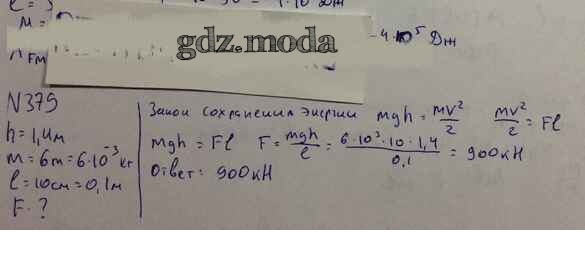 M =
gdz.moda
-4·10⁵ Дж
N379
h = 1,4м
m = 6т = 6·10⁻³ кг
l = 10см = 0,1м
F - ?
Закон сохранения энергии mgh = mv²/2 mv²/2 = Fl
mgh = Fl F = mgh/l = 6·10³·10·1,4/0,1 = 900кН
Ответ: 900кН